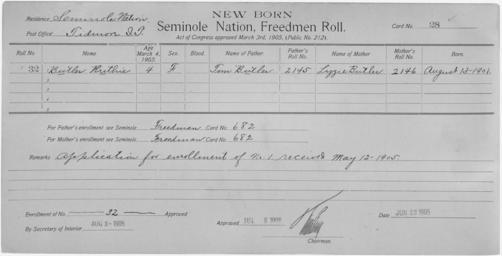 NEW BORN
Residence Seminole Nation.
Seminole Nation, Freedmen Roll.
Card No. 28
Post Office I.T.
Act of Congress approved March 3rd, 1905, (Public No. 212).
Roll No. Name Age March 4, 1905. Sex. Blood. Name of Father Father's Roll No. Name of Mother Mother's Roll No. Born.
32 Butler 4 F Tom Butler 2145 Lizzie Butler 2146 August 1901.
For Father's enrollment see Seminole Freedman Card No. 682
For Mother's enrollment see Seminole Freedman Card No. 682
Remarks Application for enrollment of No. 1 received May 12-1905.
Enrollment of No. 32 Approved
By Secretary of Interior 1905
Approved 1905
Date 1905
Chairman